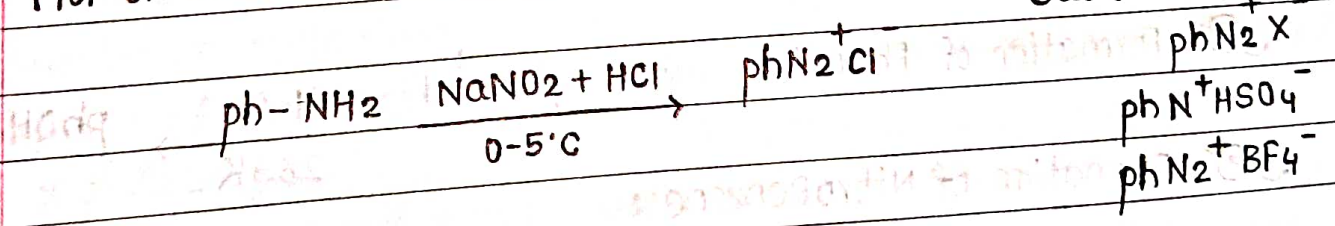 ph-NH2 NaNO2 + HCl phN2⁺Cl⁻
0-5°C
phN2⁺X
phN⁺HSO4⁻
phN2⁺BF4⁻